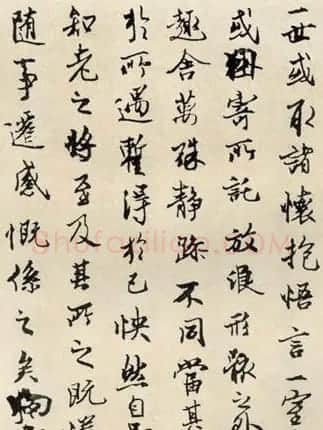 一世或取諸懷抱悟言一室
或因寄所託放浪形骸之外
趣舍萬殊靜躁不同當其
於所遇蹔得於己怏然自
知老之將至及其所之既
隨事遷感慨係之矣向